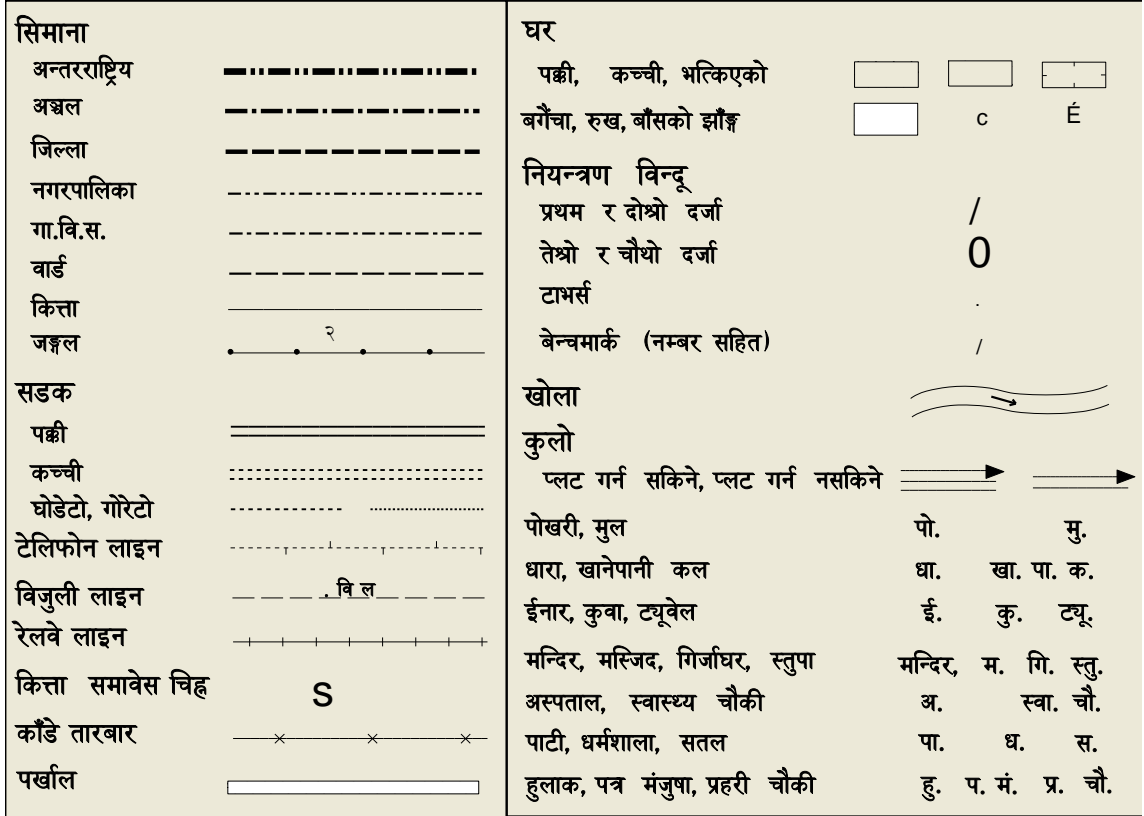 सिमाना
अन्तरराष्ट्रिय
अञ्चल
जिल्ला
नगरपालिका
गा.वि.स.
वार्ड
कित्ता
जङ्गल २
सडक
पक्की
कच्ची
घोडेटो, गोरेटो
टेलिफोन लाइन
विजुली लाइन . वि ल
रेलवे लाइन
कित्ता समावेस चिह्न S
काँडे तारबार
पर्खाल
घर
पक्की, कच्ची, भत्किएको
बगैंचा, रुख, बाँसको झाँङ्ग c É
नियन्त्रण विन्दू
प्रथम र दोश्रो दर्जा /
तेश्रो र चौथो दर्जा 0
टाभर्स .
बेन्चमार्क (नम्बर सहित) /
खोला
कुलो
प्लट गर्न सकिने, प्लट गर्न नसकिने
पोखरी, मुल पो. मु.
धारा, खानेपानी कल धा. खा. पा. क.
ईनार, कुवा, ट्यूवेल ई. कु. ट्यू.
मन्दिर, मस्जिद, गिर्जाघर, स्तुपा मन्दिर, म. गि. स्तु.
अस्पताल, स्वास्थ्य चौकी अ. स्वा. चौ.
पाटी, धर्मशाला, सतल पा. ध. स.
हुलाक, पत्र मंजुषा, प्रहरी चौकी हु. प. मं. प्र. चौ.